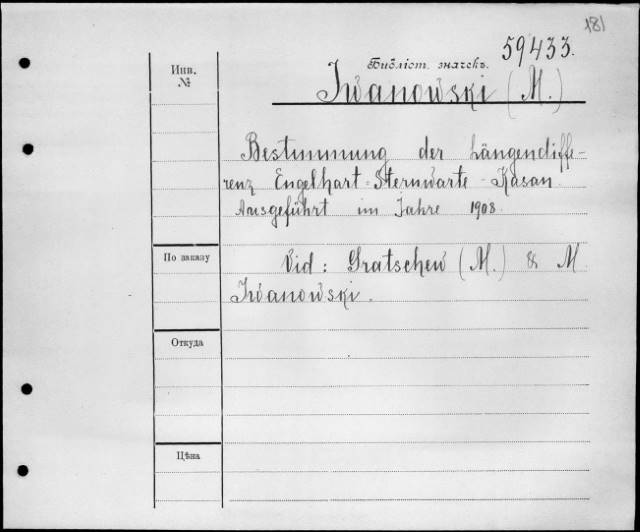 181
59433.
Инв.
№
Библіот. значекъ.
Iwanowski (M.)
Bestimmung der Längendiffe-
renz Engelhart-Sternwarte - Kasan.
Ausgeführt im Jahre 1908.
По заказу
Vid: Gratschew (M.) & M
Iwanowski.
Откуда
Цѣна